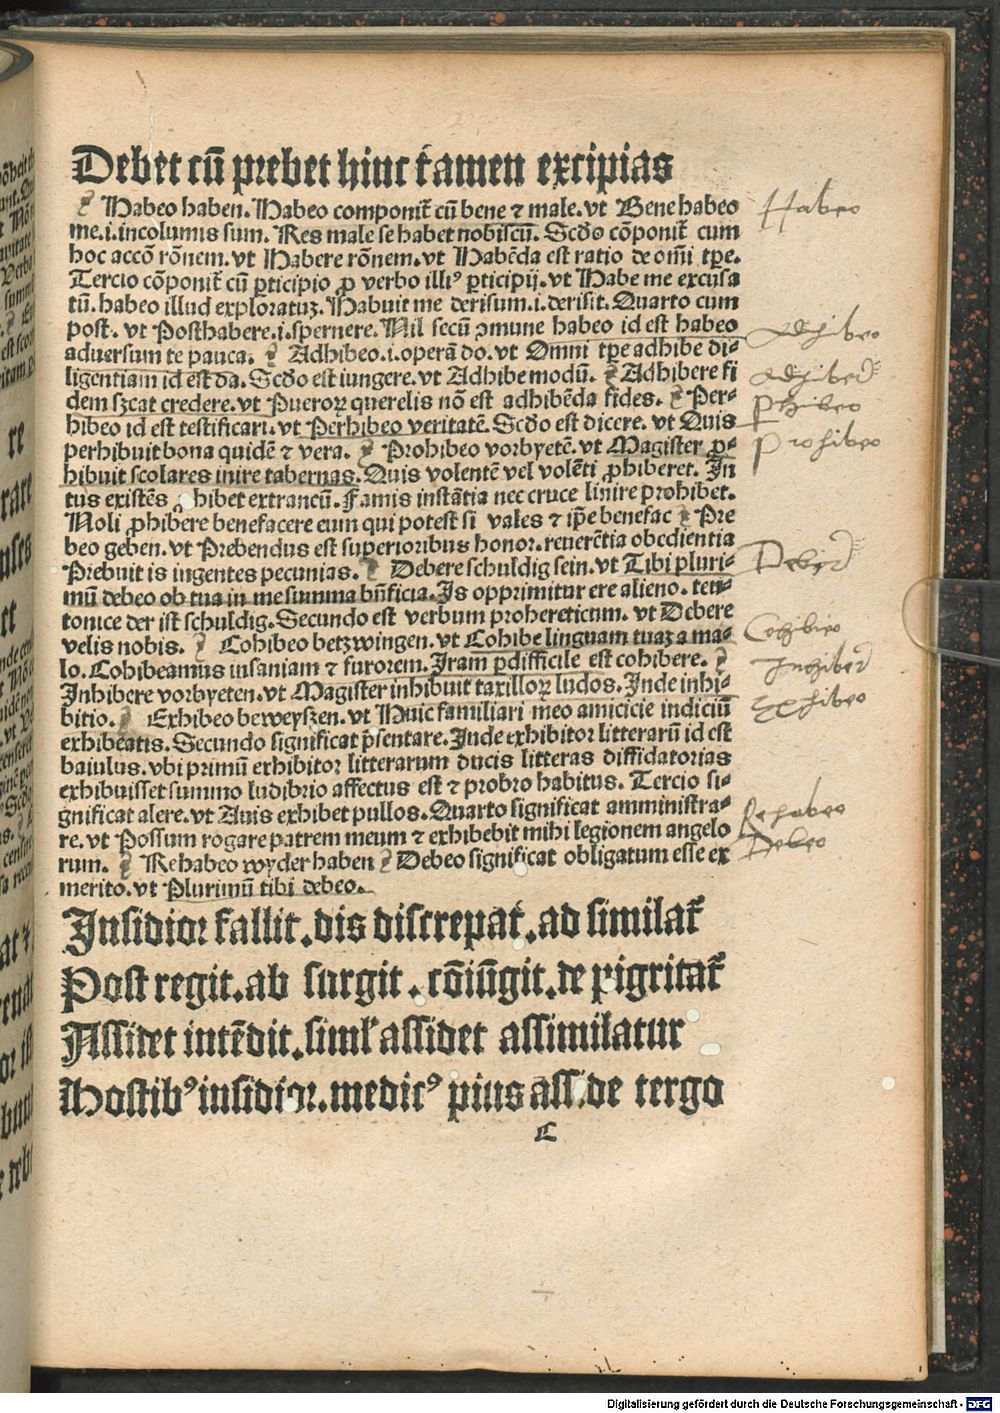 Debet cū prebet hinc tamen excipias
Habeo haben. Habeo componit̄ cū bene ⁊ male. vt Bene habeo
me .i. incolumis sum. Res male se habet nobiscū. Scd̄o cōponit̄ cum
hoc accō rōnem. vt Habere rōnem. vt Habēda est ratio de om̄i tp̄e.
Tercio cōponit̄ cū ꝑticipio ꝓ verbo illiꝰ ꝑticipij. vt Habe me excusa
tū. habeo illud exploratuꝫ. Habuit me derisum .i. derisit. Quarto cum
post. vt Posthabere .i. spernere. Nil secū ꝯmune habeo id est habeo
aduersum te pauca. Adhibeo .i. operā do. vt Omni tp̄e adhibe di-
ligentiam id est da. Scd̄o est iungere. vt Adhibe modū. Adhibere fi
dem sꝫcat credere. vt Pueroꝝ querelis nō est adhibēda fides. Per-
hibeo id est testificari. vt Perhibeo veritatē. Scd̄o est dicere. vt Quis
perhibuit bona quidē ⁊ vera. Prohibeo vorbyetē. vt Magister ꝓ-
hibuit scolares inire tabernas. Quis volentē vel volēti ꝓhiberet. In
tus existēs hibet extraneū. Famis instātia nec cruce linire prohibet.
Noli ꝓhibere benefacere eum qui potest si vales ⁊ ip̄e benefac Pre
beo geben. vt Prebendus est superioribus honor. reuerētia obedientia
Prebuit is ingentes pecunias. Debere schuldig sein. vt Tibi pluri-
mū debeo ob tua in me summa bn̄ficia. Is opprimitur ere alieno. teu-
tonice der ist schuldig. Secundo est verbum prohereticum. vt Debere
velis nobis. Cohibeo betzwingen. vt Cohibe linguam tuaꝫ a ma-
lo. Cohibeamus insaniam ⁊ furorem. Iram ꝑdifficile est cohibere.
Inhibere vorbyeten. vt Magister inhibuit taxilloꝝ ludos. Inde inhi-
bitio. Exhibeo beweyszen. vt Huic familiari meo amicicie indiciū
exhibeatis. Secundo significat p̄sentare. Inde exhibitor litterarū id est
baiulus. vbi primū exhibitor litterarum ducis litteras diffidatorias
exhibuisset summo ludibrio affectus est ⁊ probro habitus. Tercio si-
gnificat alere. vt Auis exhibet pullos. Quarto significat amministra-
re. vt Possum rogare patrem meum ⁊ exhibebit mihi legionem angelo
rum. Rehabeo wyder haben Debeo significat obligatum esse ex
merito. vt Plurimū tibi debeo.
Insidior fallit. dis discrepat. ad similat̄
Post regit. ab surgit. cōiūgit. de pigritat̄
Assidet intēdit. siml' assidet assimilatur
Hostibꝰ insidior. medicꝰ pius ass.de tergo
C
Habeo
Adhibeo
Adhiber
Phibeo
Prohibeo
Deber
Cohibeo
Inhiber
Exhibeo
Rehabeo
Debeo
Digitalisierung gefördert durch die Deutsche Forschungsgemeinschaft - DFG